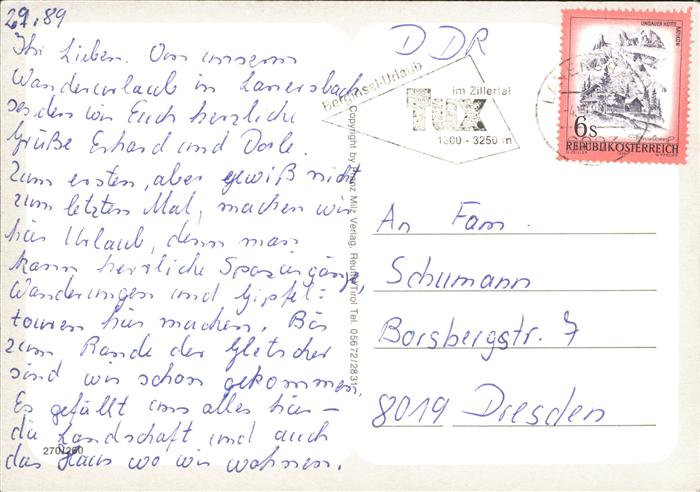 29.89
Ihr Lieben. Von unserem
Wanderurlaub in Lanersbach
senden wir Euch herzliche
Grüße Erhard und Dorle.
Zum ersten, aber gewiß nicht
zum letzten Mal, machen wir
hier Urlaub, denn man
kann herrliche Spaziergänge,
Wanderungen und Gipfel=
touren hier machen. Bis
zum Rande der Gletscher
sind wir schon gekommen.
Es gefällt uns alles hier –
die Landschaft und auch
das Haus wo wir wohnen.
270/260
Copyright by Franz Milz Verlag, Reutte/Tirol Tel. 05672/2831
DDR
Berginsel-Urlaub
Tux
im Zillertal
1300 - 3250 m
LINDAUER HÜTTE, RÄTIKON
6 S
REPUBLIK ÖSTERREICH
An Fam.
Schumann
Borsbergstr. 7
8019 Dresden